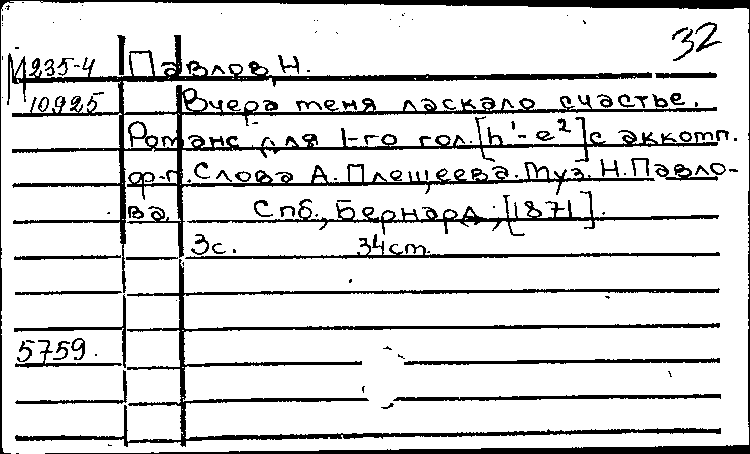 32
М 235-4 Павлов, Н.
10925 Вчера меня ласкало счастье.
Романс для 1-го гол. [h¹-e²] с аккомп.
ф-п. Слова А. Плещеева. Муз. Н. Павло-
ва. Спб., Бернард, [1871].
3с. 34см.
5759.